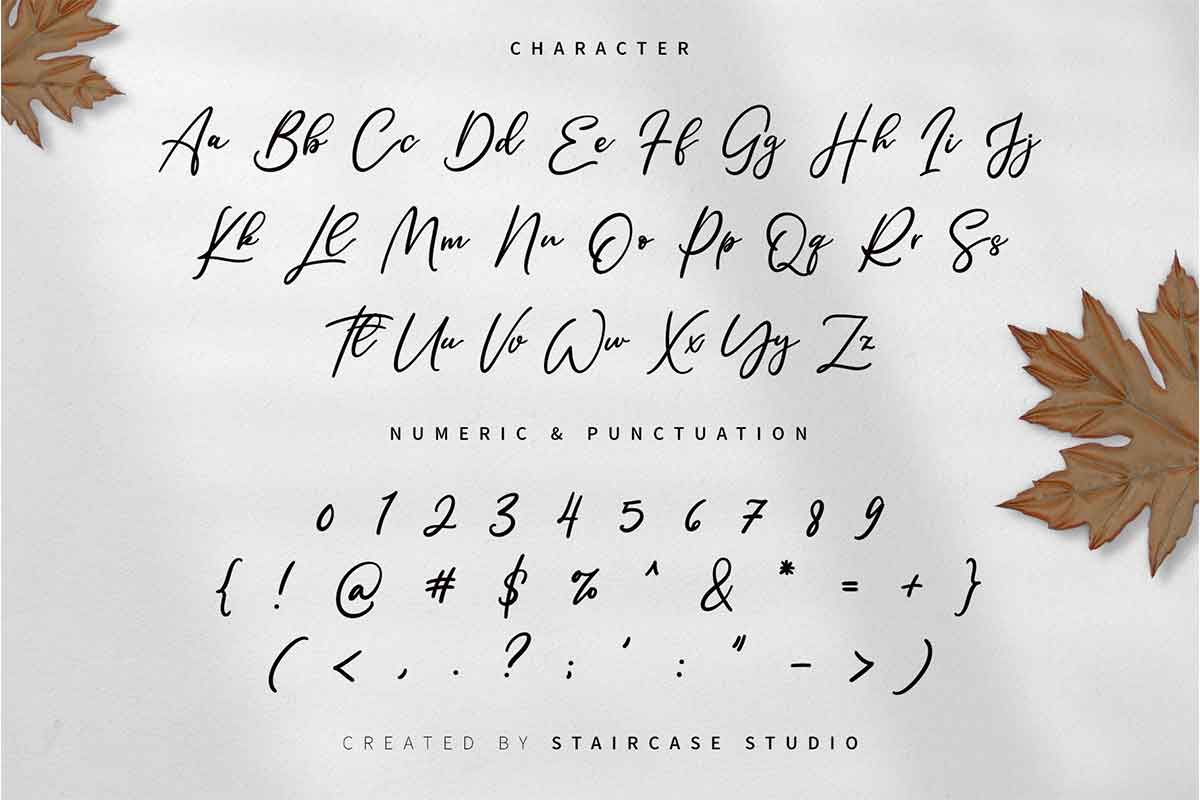 CHARACTER
Aa Bb Cc Dd Ee Ff Gg Hh Ii Jj
Kk Ll Mm Nn Oo Pp Qq Rr Ss
Tt Uu Vv Ww Xx Yy Zz
NUMERIC & PUNCTUATION
0 1 2 3 4 5 6 7 8 9
{ ! @ # $ % ^ & * = + }
( < , . ? ; ' : " - > )
CREATED BY STAIRCASE STUDIO